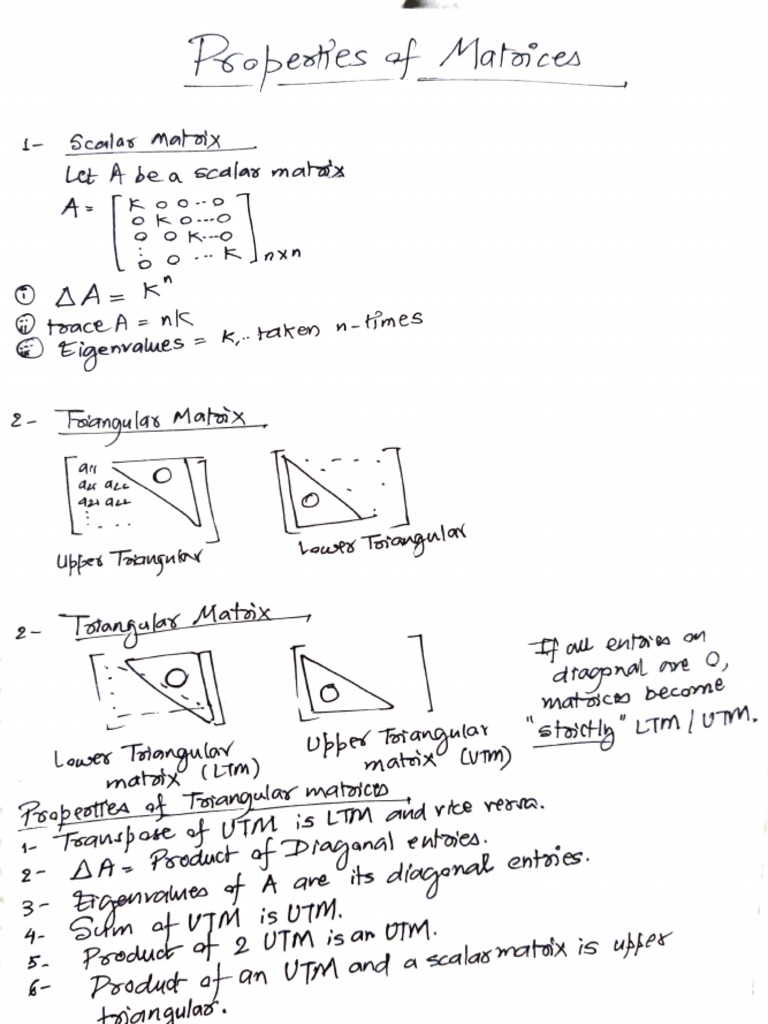 Properties of Matrices
1- Scalar Matrix
Let A be a scalar matrix
A = [ K 0 0 .. 0
0 K 0 ---- 0
0 0 K --- 0
⋮
0 0 ... K ] n×n
(i) ΔA = K^n
(ii) trace A = nK
(iii) Eigenvalues = K, .. taken n-times
2- Triangular Matrix
a11 0
a21 a22
Upper Triangular
0
Lower Triangular
2- Triangular Matrix
0
Lower Triangular
matrix (LTM)
0
Upper Triangular
matrix (UTM)
If all entries on
diagonal are 0,
matrices become
"strictly" LTM / UTM.
Properties of Triangular matrices
1- Transpose of UTM is LTM and vice versa.
2- ΔA = Product of Diagonal entries.
3- Eigenvalues of A are its diagonal entries.
4- Sum of UTM is UTM.
5- Product of 2 UTM is an UTM.
6- Product of an UTM and a scalar matrix is upper
triangular.